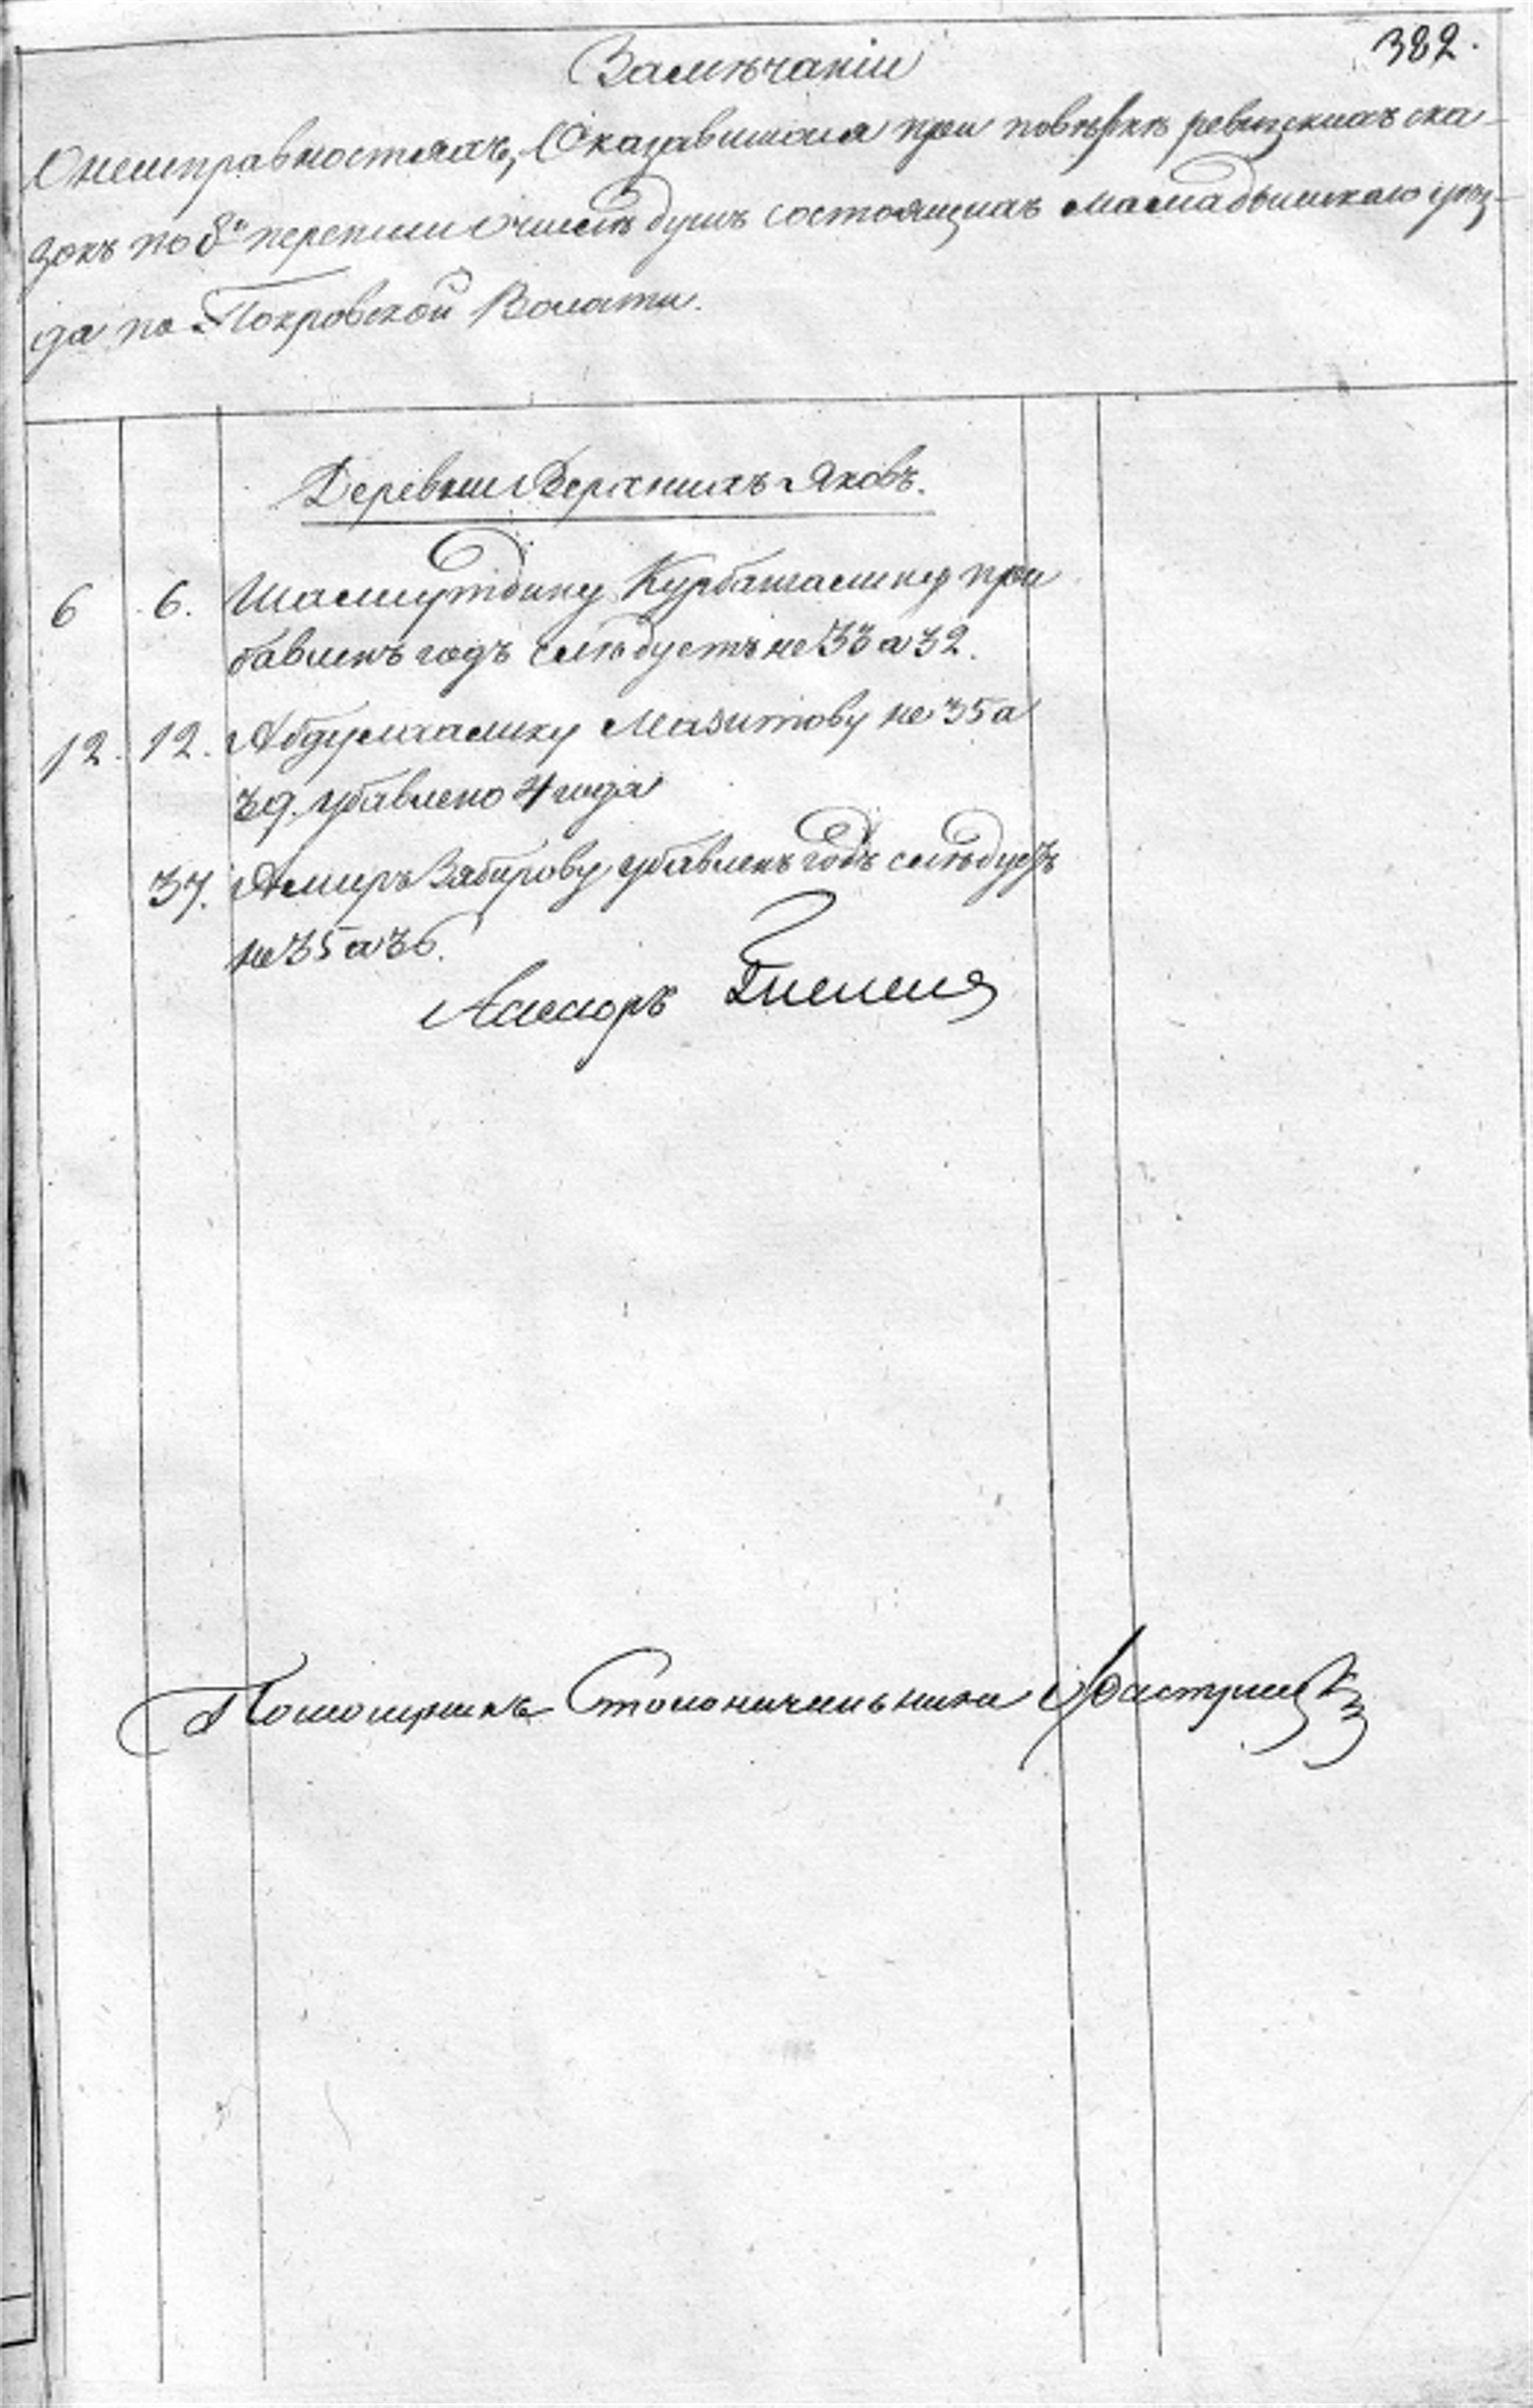 382.
Замѣчаніи
О неисправностяхъ, Оказавшихся при повѣркѣ ревизскихъ ска-
зокъ по 8й переписи о числѣ душъ состоящихъ Мамадышскаго уѣз-
да по Покровской Волости.
Деревни Верхнихъ Яковъ.
6 6. Шамсутдину Курбангалиеву при
бавленъ годъ слѣдуетъ не 33 а 32.
12. 12. Абдулхалику Мазитову не 35 а
39. убавлено 4 года
37. Амиръ Забирову убавленъ годъ слѣдуетъ
не 35 а 36.
Асесоръ
Помощникъ Столоначальника